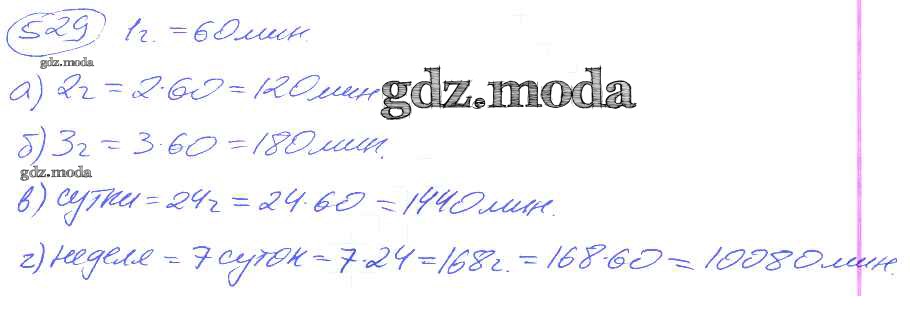 529 1г. = 60 мин.
gdz.moda
а) 2г = 2·60 = 120 мин
gdz.moda
б) 3г = 3·60 = 180 мин.
gdz.moda
в) сутки = 24г = 24·60 = 1440 мин.
г) неделя = 7 суток = 7·24 = 168г. = 168·60 = 10080 мин.